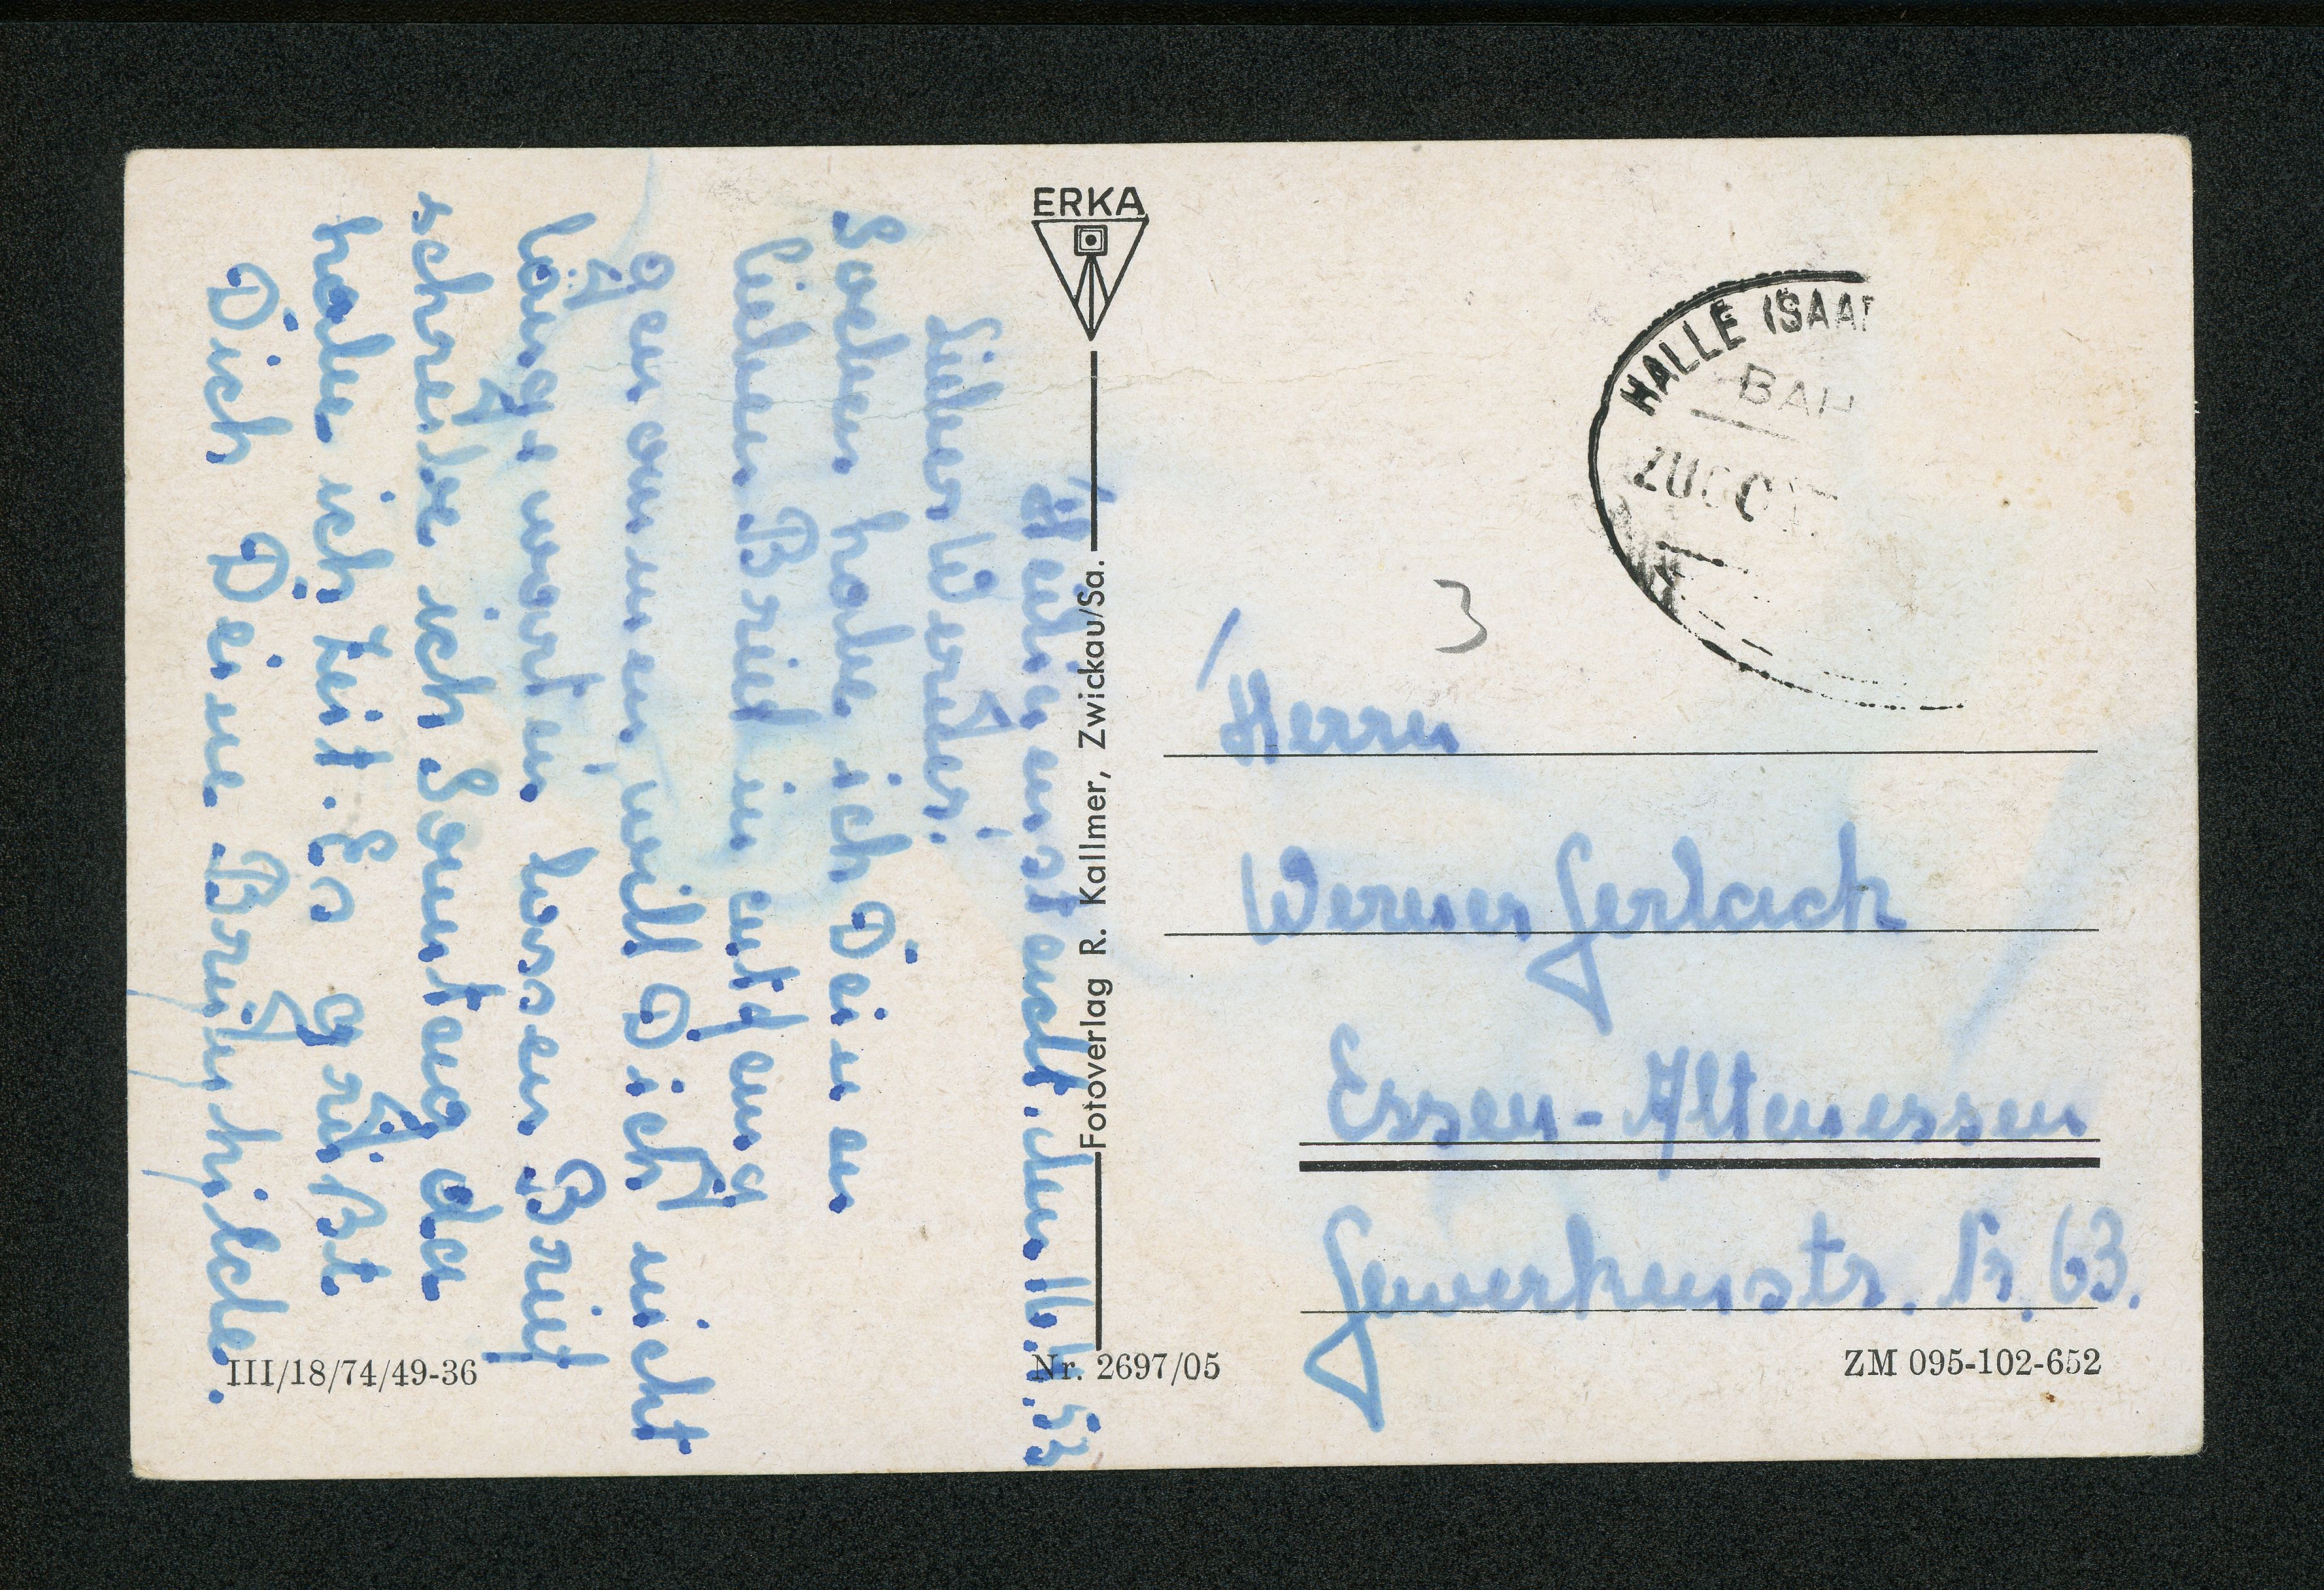 Lieber Werner!
Soeben habe ich Deinen
lieben Brief in empfang
genommen, will Dich nicht
lange warten lassen Brief
schreibe ich Sonntag da
habe ich Zeit. Es grüßt
Dich Deine Brünhilde.
ERKA
Fotoverlag R. Kallmer, Zwickau/Sa.
HALLE (SAAL
BAH
Herrn
Werner Gerlach
Essen-Altenessen
Gewerkenstr. Nr. 63.
3
III/18/74/49-36
Nr. 2697/05
ZM 095-102-652